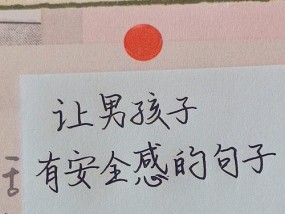 让男孩子
有安全感的句子